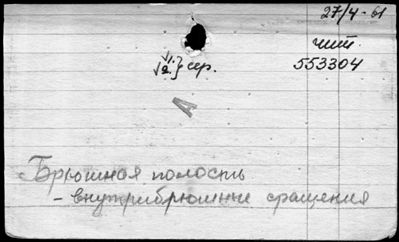 27/4-61
чит.
553304
√1.} сер.
√2.
A
Брюшная полость
- внутрибрюшные сращения